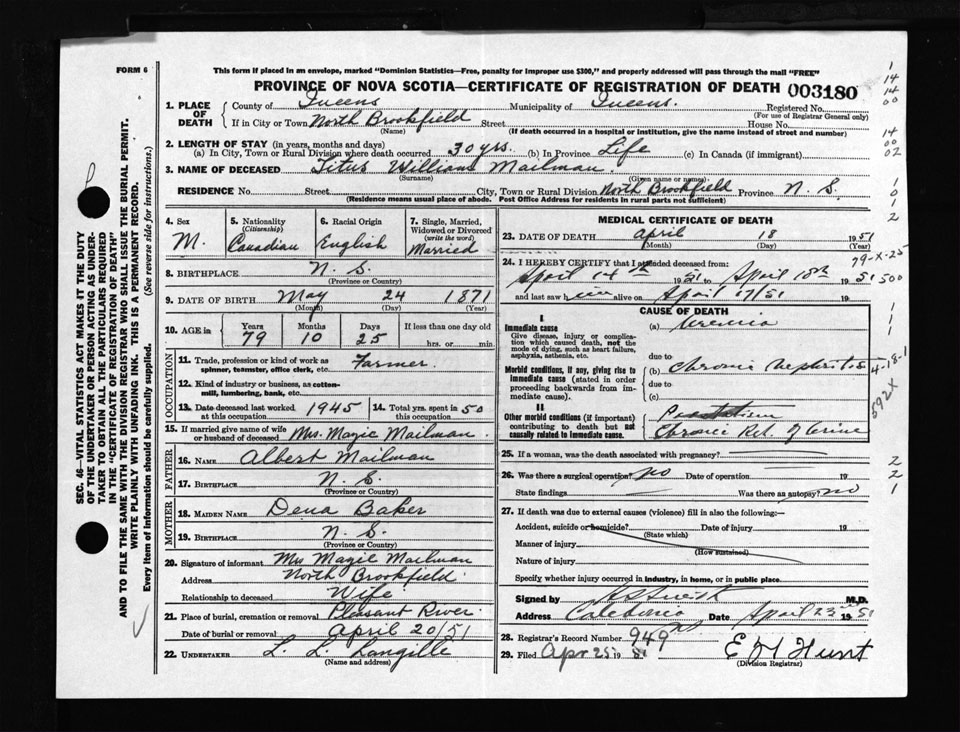 FORM 6
This form if placed in an envelope, marked "Dominion Statistics—Free, penalty for improper use $300," and properly addressed will pass through the mail "FREE"
PROVINCE OF NOVA SCOTIA—CERTIFICATE OF REGISTRATION OF DEATH 003180
SEC. 46—VITAL STATISTICS ACT MAKES IT THE DUTY
OF THE UNDERTAKER OR PERSON ACTING AS UNDER-
TAKER TO OBTAIN ALL THE PARTICULARS REQUIRED
IN THE "CERTIFICATE OF REGISTRATION OF DEATH"
AND TO FILE THE SAME WITH THE DIVISION REGISTRAR WHO SHALL ISSUE THE BURIAL PERMIT.
WRITE PLAINLY WITH UNFADING INK. THIS IS A PERMANENT RECORD.
Every item of information should be carefully supplied. (See reverse side for instructions.)
1. PLACE OF DEATH
County of Queens Municipality of Queens. Registered No.
(For use of Registrar General only)
If in City or Town North Brookfield Street House No.
(Name) (If death occurred in a hospital or institution, give the name instead of street and number)
2. LENGTH OF STAY (in years, months and days)
(a) In City, Town or Rural Division where death occurred 30 yrs. (b) In Province Life (c) In Canada (if immigrant)
3. NAME OF DECEASED Titus William Mailman.
(Surname) (Given name or names)
RESIDENCE No. Street City, Town or Rural Division North Brookfield Province N. S.
(Residence means usual place of abode. Post Office Address for residents in rural parts not sufficient)
4. Sex M.
5. Nationality (Citizenship) Canadian
6. Racial Origin English
7. Single, Married, Widowed or Divorced (write the word) Married
8. BIRTHPLACE N. S.
(Province or Country)
9. DATE OF BIRTH May 24 1871
(Month) (Day) (Year)
10. AGE in Years 79 Months 10 Days 25 If less than one day old
hrs. or min.
OCCUPATION
11. Trade, profession or kind of work as spinner, teamster, office clerk, etc. Farmer.
12. Kind of industry or business, as cotton-mill, lumbering, bank, etc.
13. Date deceased last worked at this occupation 1945 14. Total yrs. spent in 50 this occupation
15. If married give name of wife or husband of deceased Mrs. Magie Mailman.
FATHER
16. NAME Albert Mailman
17. BIRTHPLACE N. S.
(Province or Country)
MOTHER
18. MAIDEN NAME Dena Baker
19. BIRTHPLACE N. S.
(Province or Country)
20. Signature of informant Mrs Magie Mailman
Address North Brookfield
Relationship to deceased Wife
21. Place of burial, cremation or removal Pleasant River.
Date of burial or removal April 20/51
22. UNDERTAKER L. L. Langille
(Name and address)
MEDICAL CERTIFICATE OF DEATH
23. DATE OF DEATH April 18 1951
(Month) (Day) (Year)
24. I HEREBY CERTIFY that I attended deceased from:
April 14th 1951 to April 18th 1951
and last saw him alive on April 17/51 19
CAUSE OF DEATH
I
Immediate cause
Give disease, injury or complication which caused death, not the mode of dying, such as heart failure, asphyxia, asthenia, etc.
(a) Uremia
due to
Morbid conditions, if any, giving rise to immediate cause (stated in order proceeding backwards from immediate cause).
(b) Chronic Nephritis
due to
(c)
II
Other morbid conditions (if important) contributing to death but not causally related to immediate cause.
Prostatism
Chronic Ret. of Urine
25. If a woman, was the death associated with pregnancy?
26. Was there a surgical operation? no Date of operation 19
State findings Was there an autopsy? no
27. If death was due to external causes (violence) fill in also the following:—
Accident, suicide or homicide? Date of injury 19
(State which)
Manner of injury
(How sustained)
Nature of injury
Specify whether injury occurred in industry, in home, or in public place.
Signed by M.D.
Address Caledonia Date April 23 1951
28. Registrar's Record Number 949
29. Filed Apr 25 1951 E H Hunt
(Division Registrar)
1
14
14
00
14
00
02
1
0
1
2
79-X-25
500
1
1
4-18-1
592X
2
2
1